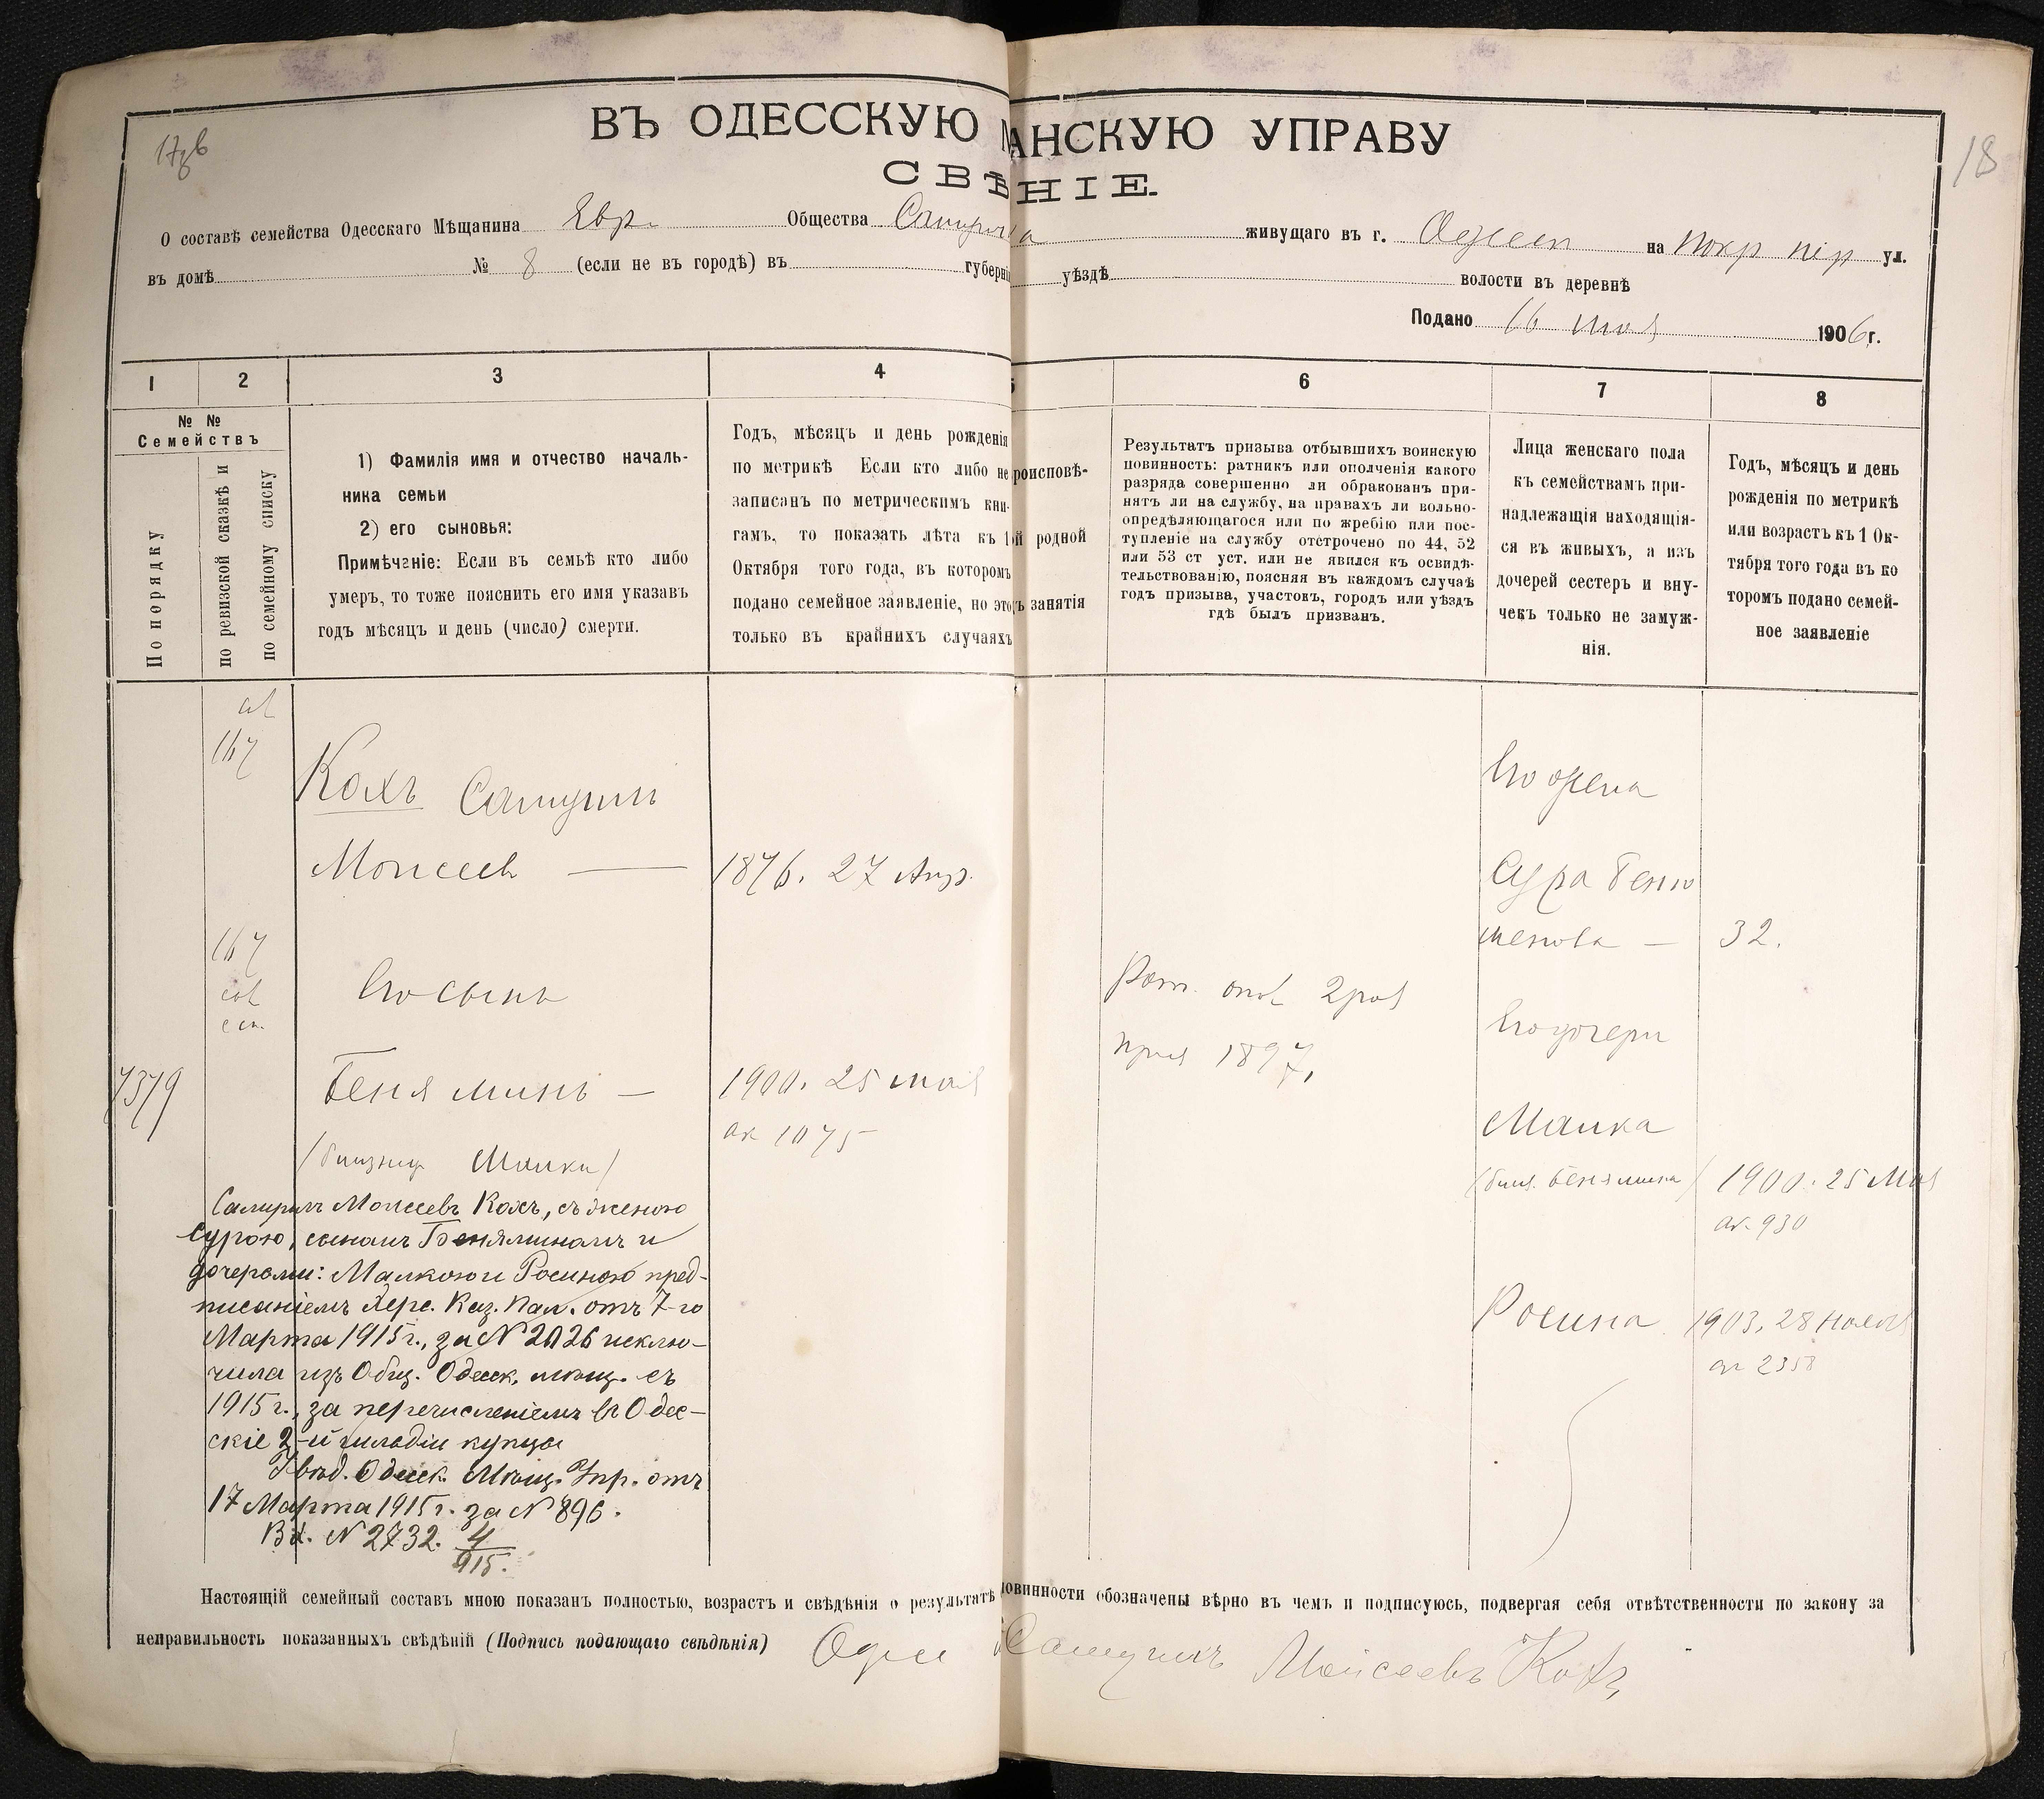 17об
18
ВЪ ОДЕССКУЮ М АНСКУЮ УПРАВУ
СВѢ НІЕ.
О составѣ семейства Одесскаго Мѣщанина Евр. Общества Самуила живущаго въ г. Одессѣ на покр пер ул.
въ домѣ № 8 (если не въ городѣ) въ губерніи уѣздѣ волости въ деревнѣ
Подано 16 мая 1906 г.
1 2 3 4 5 6 7 8
№ №
Семействъ
По порядку
по ревизской сказкѣ и
по семейному списку
1) Фамилія имя и отчество началь-
ника семьи
2) его сыновья:
Примѣчаніе: Если въ семьѣ кто либо
умеръ, то тоже пояснить его имя указавъ
годъ мѣсяцъ и день (число) смерти.
Годъ, мѣсяцъ и день рожденія
по метрикѣ Если кто либо не
записанъ по метрическимъ кни-
гамъ, то показать лѣта къ 1
Октября того года, въ которомъ
подано семейное заявленіе, но это
только въ крайнихъ случаяхъ
роисповѣ-
й родной
ъ занятія
Результатъ призыва отбывшихъ воинскую
повинность: ратникъ или ополченія какого
разряда совершенно ли обракованъ при-
нятъ ли на службу, на правахъ ли вольно-
опредѣляющагося или по жребію или пос-
тупленіе на службу отстрочено по 44, 52
или 53 ст уст. или не явился къ освидѣ-
тельствованію, поясняя въ каждомъ случаѣ
годъ призыва, участокъ, городъ или уѣздъ
гдѣ былъ призванъ.
Лица женскаго пола
къ семействамъ при-
надлежащія находящія-
ся въ живыхъ, а изъ
дочерей сестеръ и вну-
чекъ только не замуж-
нія.
Годъ, мѣсяцъ и день
рожденія по метрикѣ
или возрастъ къ 1 Ок-
тября того года въ ко
торомъ подано семей-
ное заявленіе
167
Кохъ Самуилъ
Моисеев — 1876. 27 Апр.
167
Его сынъ
7379
Бенямин — 1900. 25 мая
ак 1075
(близнец Малки)
Рат. опол 2 раз
приз 1897.
Его жена
Сура Беню
менова — 32.
Его дочери
Малка
(близ. Бенямина) 1900. 25 Мая
ак. 930
Росина 1903. 28 Ноя
ак 2358
Самуилъ Моисеевъ Кохъ, съ женою
Сурою, сыномъ Бенямином и
дочерями: Малкою и Росиною пред-
писаніемъ Херс. Каз. Пал. отъ 7-го
Марта 1915 г., за № 2026 исклю-
чила изъ Общ. Одесск. мѣщ. съ
1915 г., за перечисленіемъ въ Одес-
скіе 2-й гильдіи купцы
Увѣд. Одесск. Мѣщ. Упр. отъ
17 Марта 1915 г. за № 896.
Вх. № 2732. 4/915.
Настоящій семейный составъ мною показанъ полностью, возрастъ и свѣдѣнія о результатѣ повинности обозначены вѣрно въ чемъ и подписуюсь, подвергая себя отвѣтственности по закону за
неправильность показанныхъ свѣдѣній (Подпись подающаго свѣдѣнія) Самуилъ Мойсеевъ Кохъ